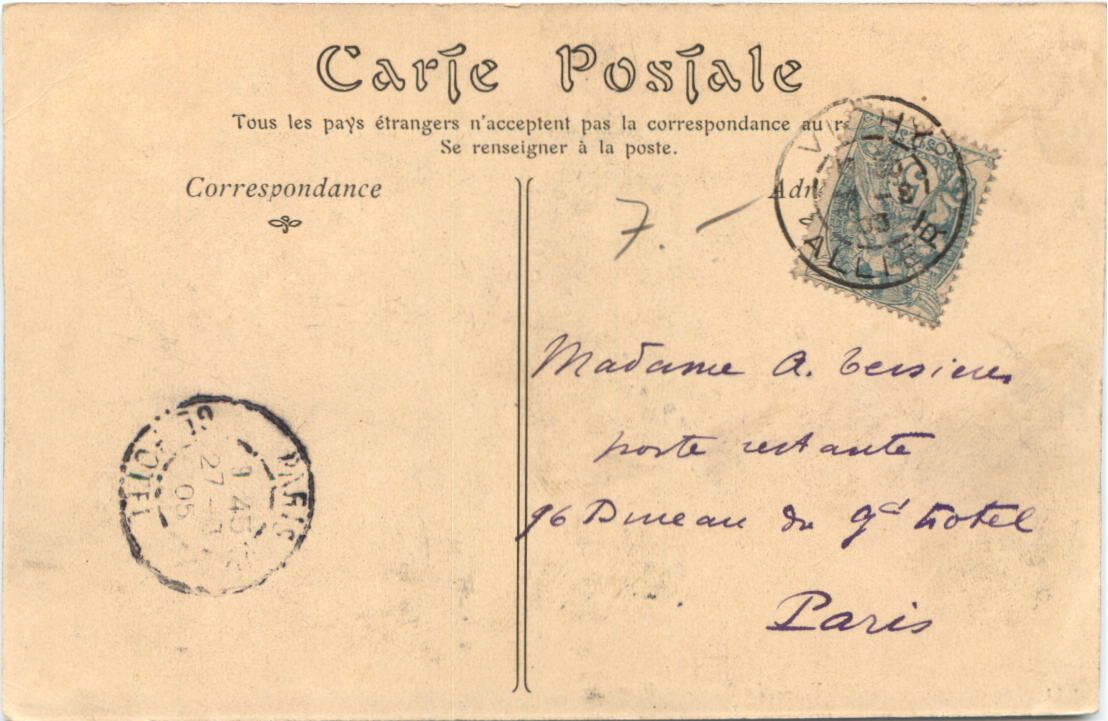 Carte Postale
Tous les pays étrangers n'acceptent pas la correspondance au r
Se renseigner à la poste.
Correspondance
Adr
7. -
VICHY
ALLIER
Madame A.
poste restante
96 Bureau du Gd Hotel
Paris
PARIS
9 45
27
05